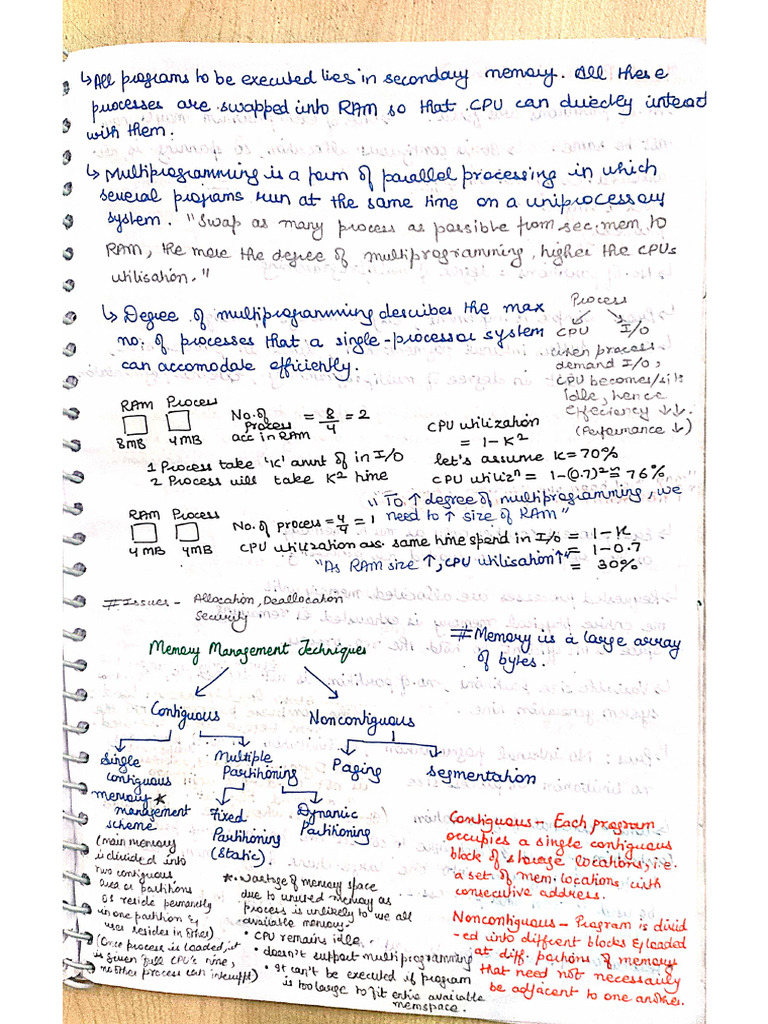 ↳ All programs to be executed lies in secondary memory. All these
processes are swapped into RAM so that CPU can directly interact
with them.
↳ Multiprogramming is a form of parallel processing in which
several programs run at the same time on a uniprocessor
system. "Swap as many process as possible from sec. mem to
RAM, the more the degree of multiprogramming, higher the CPUs
utilisation."
↳ Degree of multiprogramming describes the max
no. of processes that a single-processor system
can accomodate efficiently.
Process
CPU I/O
when process
demand I/O,
CPU becomes/sits
Idle, hence
effeciency ↓↓.
(Performance ↓)
RAM Process
8MB 4MB
No. of Process acc in RAM = 8/4 = 2
CPU utilization
= 1-K²
1 Process take 'K' amnt of in I/O
2 Process will take K² time
let's assume K=70%
CPU utilizⁿ = 1-(0.7)² ≈ 76%
"To ↑ degree of multiprogramming, we
need to ↑ size of RAM"
RAM Process
4 MB 4MB
No. of process = 4/4 = 1
CPU utilization ass. same time spend in I/O = 1-K
= 1-0.7
= 30%
"As RAM size ↑, CPU utilisation ↑"
# Issues - Allocation, Deallocation
Security
# Memory is a large array
of bytes.
Memory Management Techniques
Contiguous Noncontiguous
Single
contiguous
memory *
management
scheme
Multiple
Partitioning
Paging Segmentation
Fixed
Partitioning
(Static).
Dynamic
Partitioning
(main memory
is divided into
two contiguous
area or partitions
OS reside permanently
in one partition &
user resides in other)
(Once process is loaded, it
is given full CPU's time,
no other process can interrupt)
*. Wastage of memory space
due to unused memory as
process is unlikely to use all
available memory.
• CPU remains idle.
• doesn't support multiprogramming
• It can't be executed if program
is too large to fit entire available
memspace.
Contiguous - Each program
occupies a single contiguous
block of storage locations, i.e.
a set of mem. locations with
consecutive address.
Noncontiguous - Program is divid
-ed into different blocks & loaded
at diff. portions of memory
that need not necessarily
be adjacent to one another.